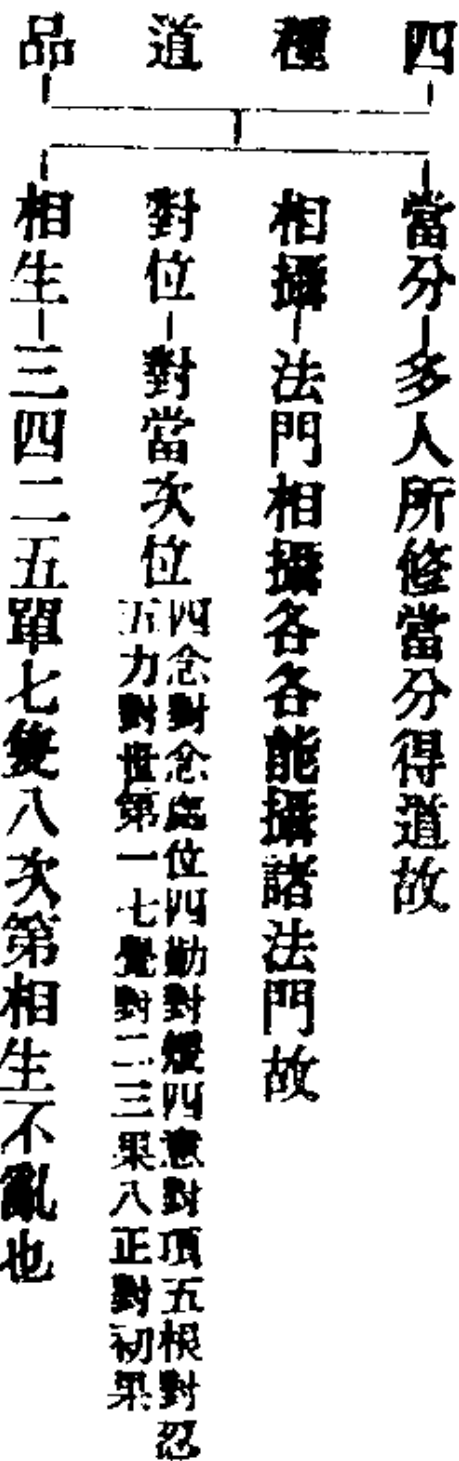 四種道品
當分 多人所修當分得道故
相攝 法門相攝各各能攝諸法門故
對位 對當次位
四念對念處位四勤對煖四意對頂五根對忍
五力對世第一七覺對二三果八正對初果
相生 三四二五單七隻八次第相生不亂也